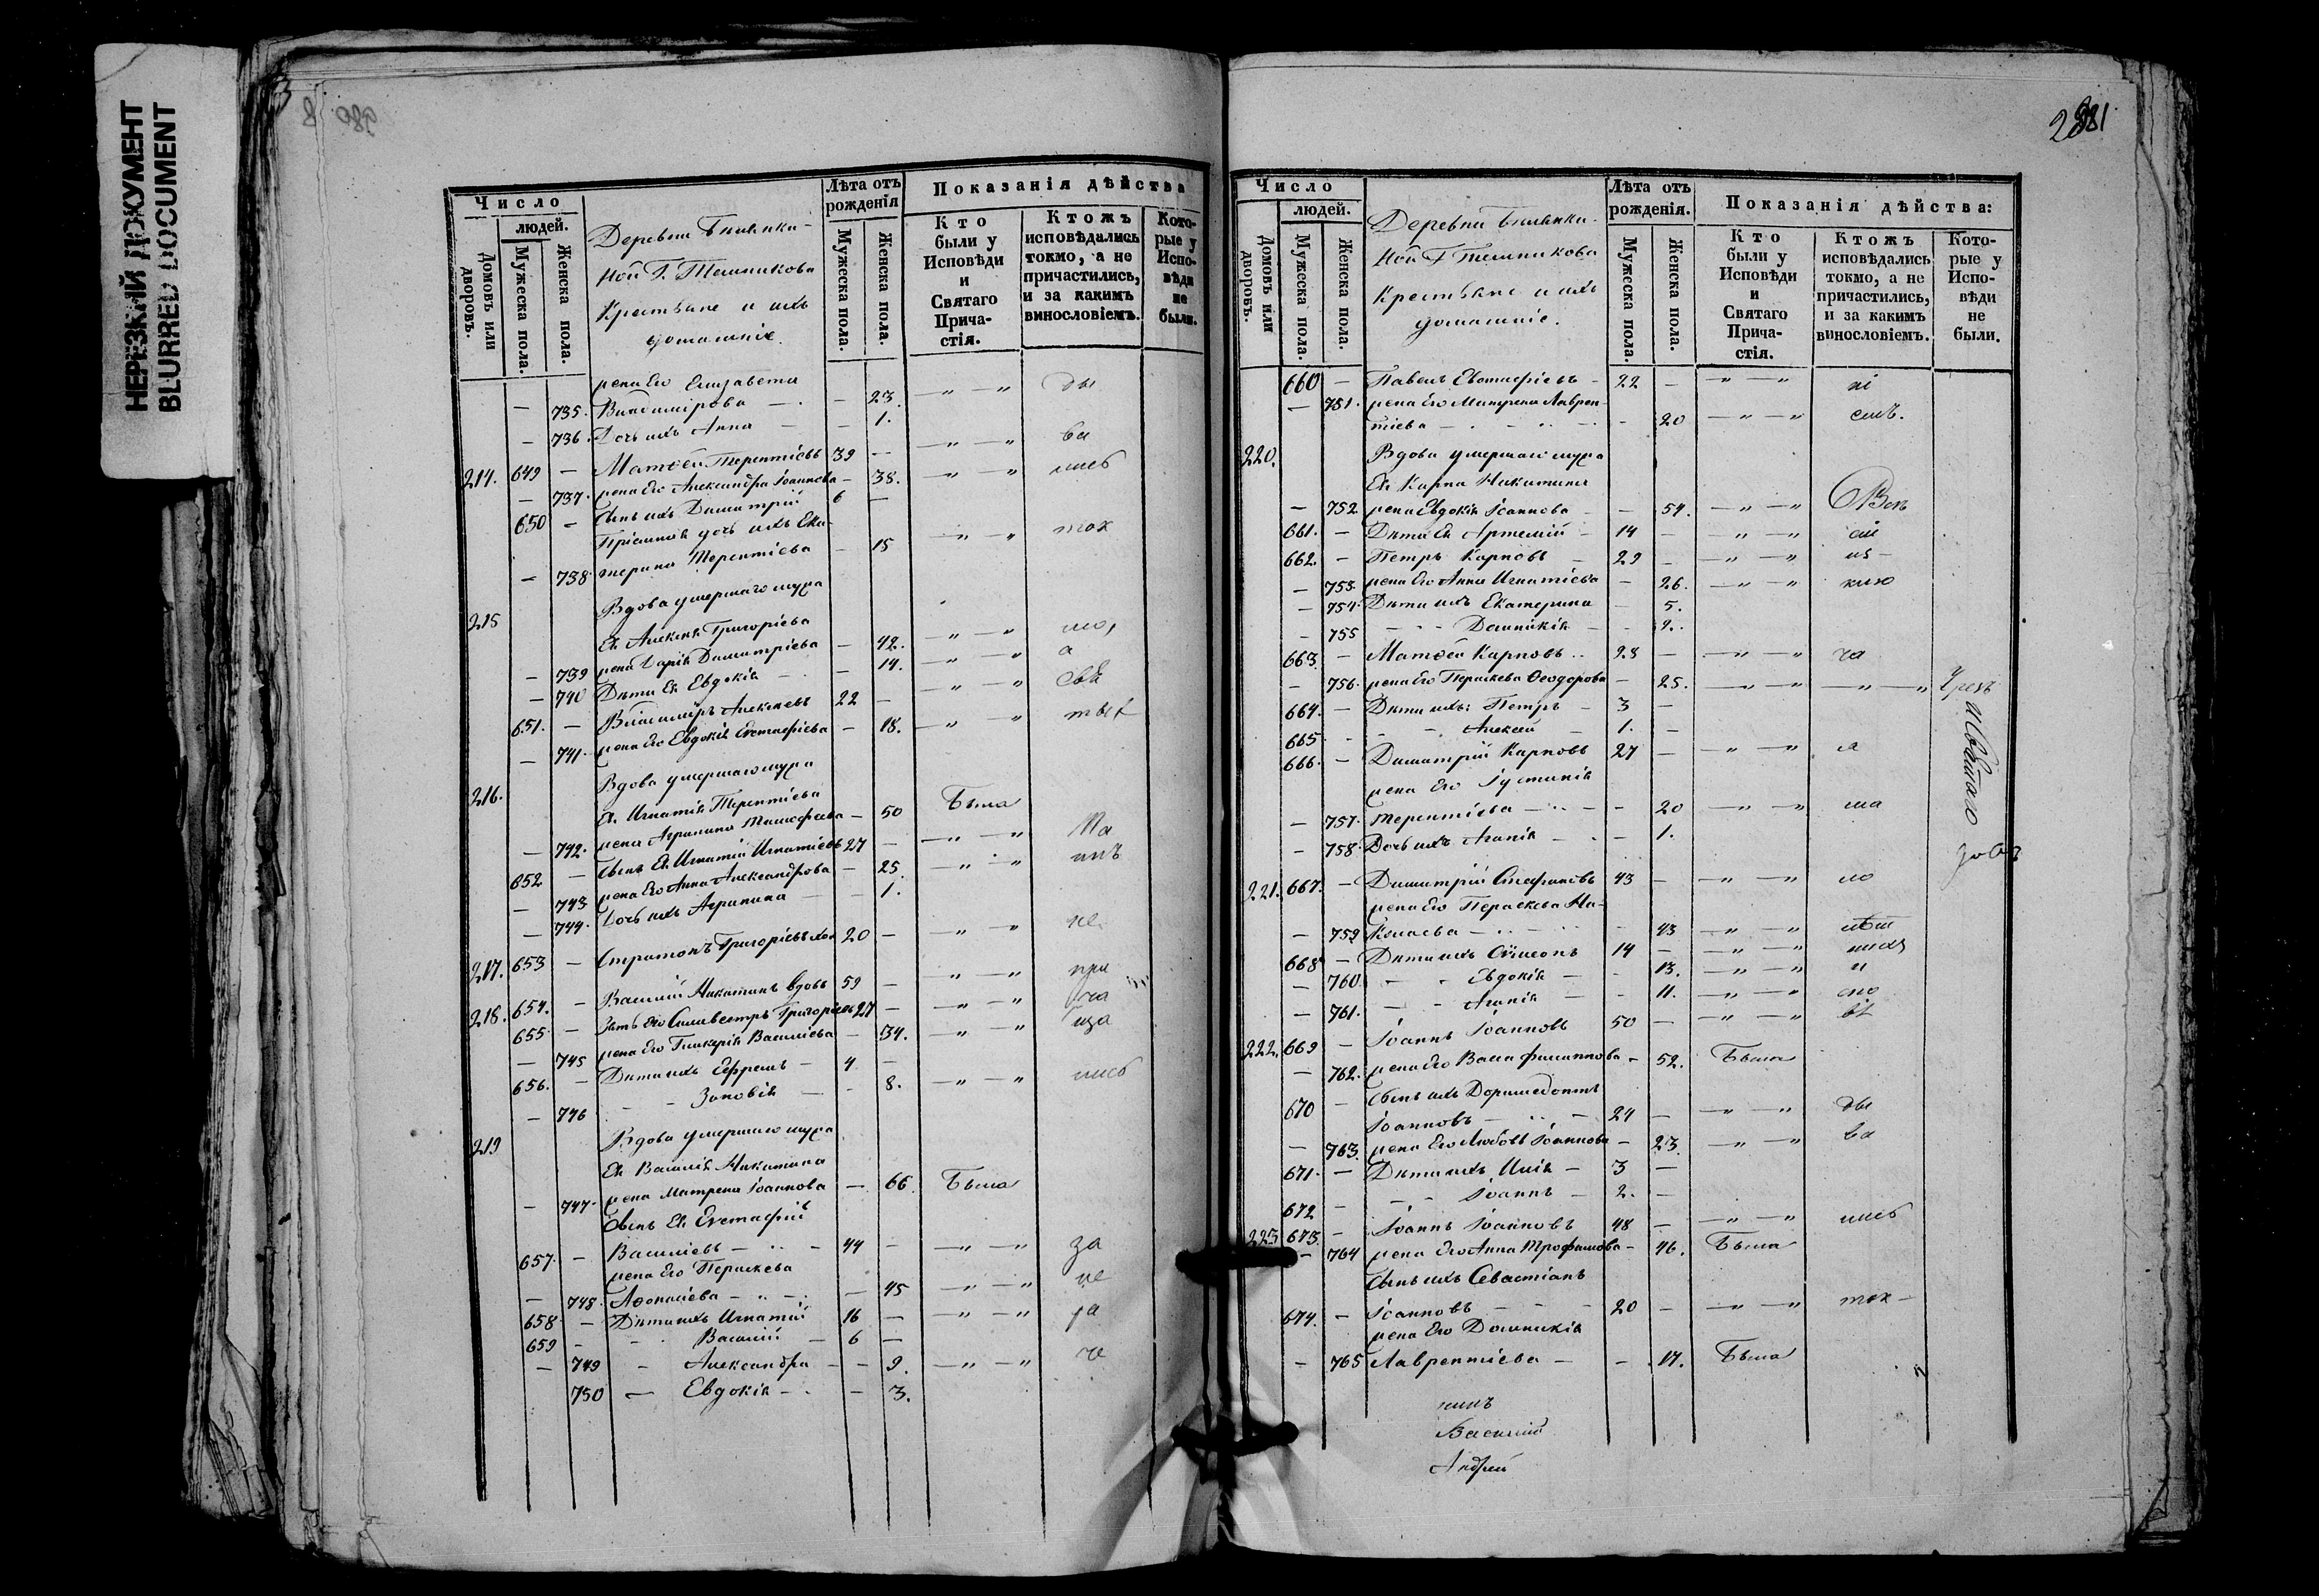 НЕРЕЗКИЙ ДОКУМЕНТ
BLURRED DOCUMENT
380
Число
людей.
Домовъ или дворовъ.
Мужеска пола.
Женска пола.
Деревни
Г.
Крестьяне и ихъ
домашніе.
Лѣта отъ рожденія
Мужеска пола.
Женска пола.
Показанія дѣйства
Кто были у Исповѣди и Святаго Причастія.
Ктожъ исповѣдались токмо, а не причастились, и за какимъ винословіемъ.
Которые у Исповѣди не были.
жена Его Елизавета
— 735. Владимірова — — 23. —„—„ ды
— 736. Дочь ихъ Анна — — 1.
214. 649 — Матѳей Терентіевъ 39 — —„—„ ва
— 737. жена Его Александра Іоаннова — 38. —„—„ лись
650 — Сынъ ихъ Димитрій 6 —
Пріемная дочь ихъ Ека-
— 738. терина Терентіева — 15 —„—„ ток
215 Вдова умершаго мужа
Ея Алексія Григоріева
— 739 жена Дарія Димитріева — 42. —„—„ мо,
— 740 Дѣти Ея Евдокія — — 14. —„—„ а
651. — Владиміръ Алексіевъ 22 — —„—„ Свя
— 741. жена Его Евдокія Евстафіева — 18. —„—„ тых
216. Вдова умершаго мужа
Ея Игнатія Терентіева
— 742. жена Агрипина Тимофеева — 50 Была
652 — Сынъ Ея Игнатій Игнатіевъ 27 — —„—„ Та
— 743 жена Его Анна Александрова — 25. —„—„ инъ
— 744. Дочь ихъ Агрипина — — 1.
217. 653 — Стратонъ Григорьевъ хол 20 — —„—„ не
218. 654. — Василій Никитинъ вдовъ 59 — —„—„ при
655 — Зять Его Силивестръ Григорьевъ 27 — —„—„ ча
— 745 жена Его Гликерія Васильева — 34. —„—„ ща
656. — Дѣти ихъ Ефремъ — 4 —
— 746 — Зиновія — — 8. —„—„ лись
219 Вдова умершаго мужа
Ея Василія Никитина
— 747. жена Матрена Іоаннова — 66. Была
Сынъ Ея Евстафій
657. — Васильевъ — 44 — —„—„ за
жена Его Параскева
— 748. Аѳонасіева — — 45 —„—„ не
658 — Дѣти ихъ Игнатій 16 — —„—„ ра
659 — Василій — 6 —
— 749 — Александра — — 9. —„—„ че
750 — Евдокія — — 3.
281
Число
людей.
Домовъ или дворовъ.
Мужеска пола.
Женска пола.
Деревни
Г.
Крестьяне и ихъ
домашніе.
Лѣта отъ рожденія.
Мужеска пола.
Женска пола.
Показанія дѣйства:
Кто были у Исповѣди и Святаго Причастія.
Ктожъ исповѣдались токмо, а не причастились, и за какимъ винословіемъ.
Которые у Исповѣди не были.
660 — Павелъ Евстафіевъ — 22 — —„—„ ні
— 751. жена Его Матрена Лаврен-
тіева — — 20 —„—„ емъ.
220. Вдова умершаго мужа
Ея Карпа Никитина
— 752 жена Евдокія Іоаннова — — 54. —„—„
661. — Дѣти Ея Артемій — 14 — —„—„
662. — Петръ Карповъ — 29 — —„—„
— 753. жена Его Анна Игнатіева — 26. —„—„
— 754. Дѣти ихъ Екатерина — 5.
— 755 — Домникія — — 2.
663. — Матѳей Карповъ 28 — —„—„ ча
— 756. жена Его Параскева Ѳеодорова — 25. —„—„ —„—„
664. — Дѣти ихъ: Петръ — 3 —
665. — Алексій — 1. —
666. — Димитрій Карповъ 27 — —„—„
жена Его Іустинія
— 757. Терентіева — — 20 —„—„
— 758. Дочь ихъ Агапія — — 1.
221. 667. — Димитрій Стефановъ 43 — —„—„
жена Его Параскева Ма-
— 759 — 43 —„—„
668 — Дѣти ихъ Сѵмеонъ 14 — —„—„
— 760 — Евдокія — — 13. —„—„ и
— 761. — Агапія — — 11. —„—„
222. 669 — Іоаннъ Іоанновъ 50 — —„—„
— 762. жена Его Васса Филиппова — 52. Была
Сынъ ихъ Доримедонтъ
670 — Іоанновъ — 24 — —„—„ ды
— 763. жена Его Любовь Іоаннова — 23. —„—„ ва
671. — Дѣти ихъ Илія — 3 —
672 — Іоаннъ — 2. —
223 673. — Іоаннъ Іоанновъ 48 — —„—„ лись
— 764 жена Его Анна Трофимова — 46. Была
Сынъ ихъ Севастіанъ
674. — Іоанновъ — 20 — —„—„ ток
жена Его Домникія
— 765 Лаврентіева — — 17. Была
Василій
Андрей